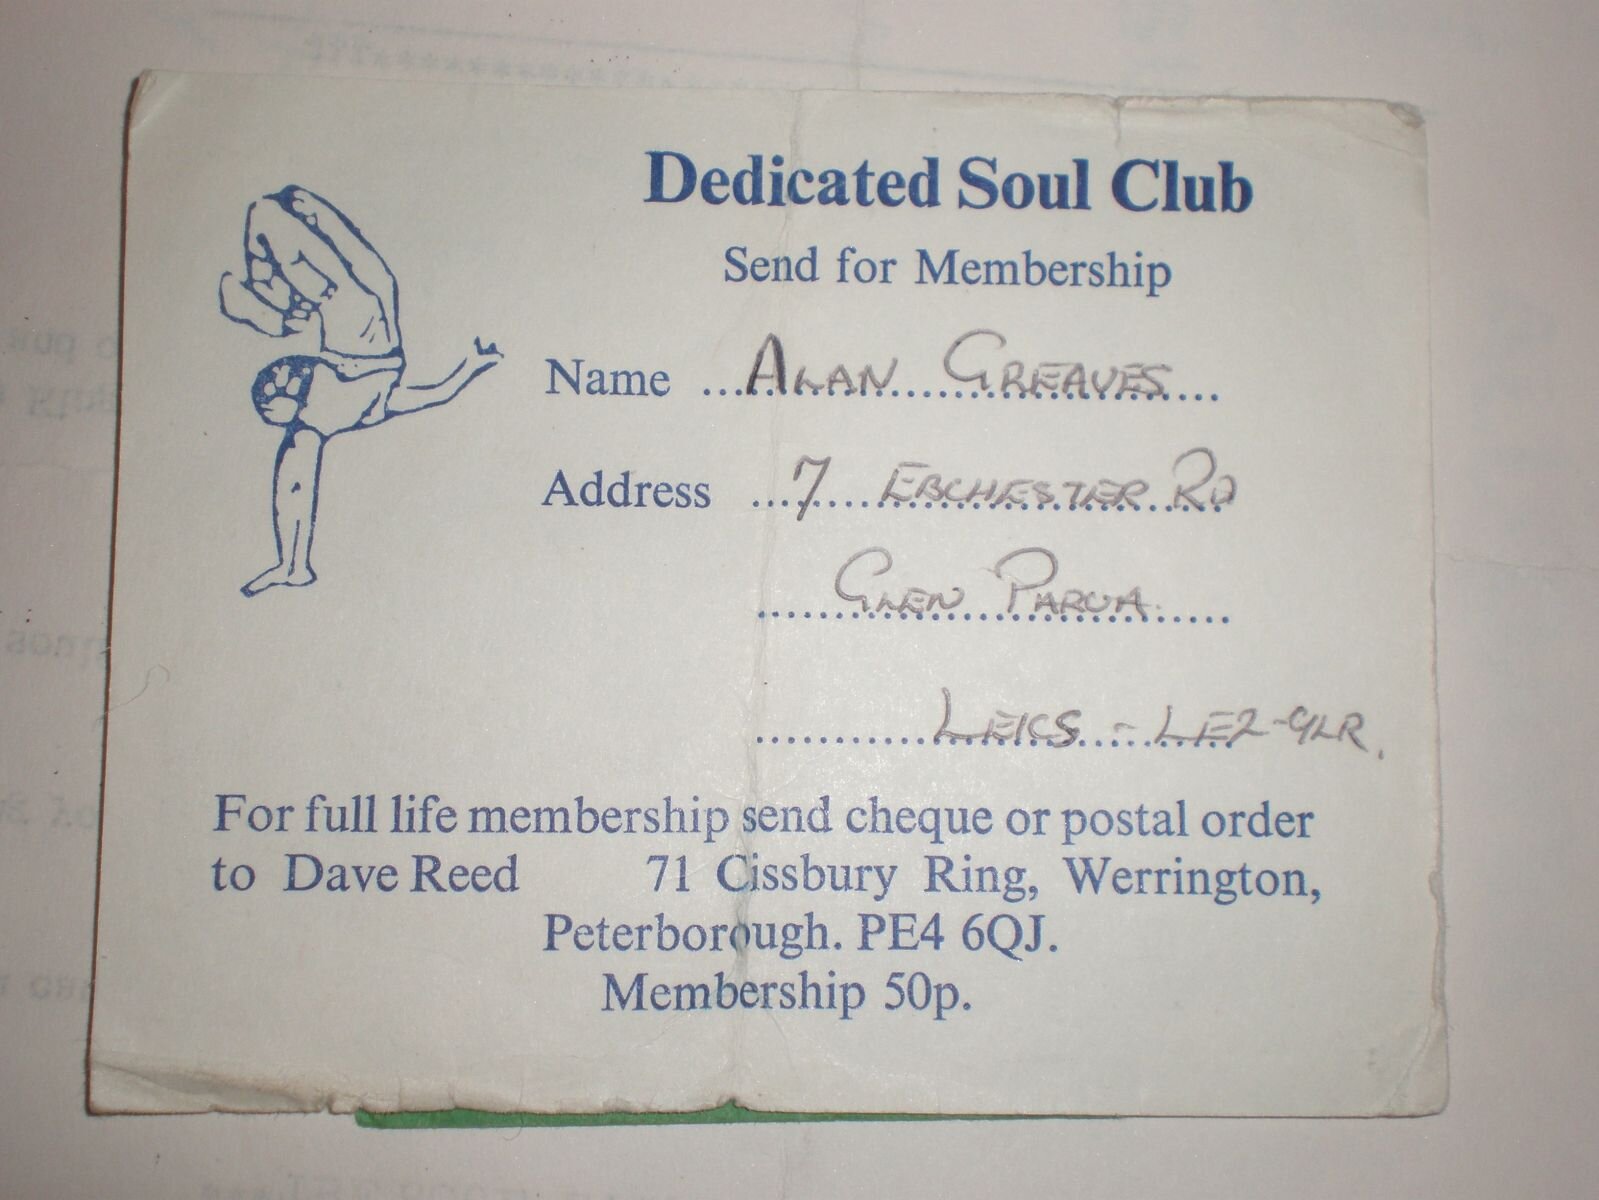 Dedicated Soul Club
Send for Membership
Name ... ALAN GREAVES
Address ... 7 EBCHESTER RD
GLEN PARVA.
LEICS - LE2-9LR.
For full life membership send cheque or postal order
to Dave Reed 71 Cissbury Ring, Werrington,
Peterborough. PE4 6QJ.
Membership 50p.